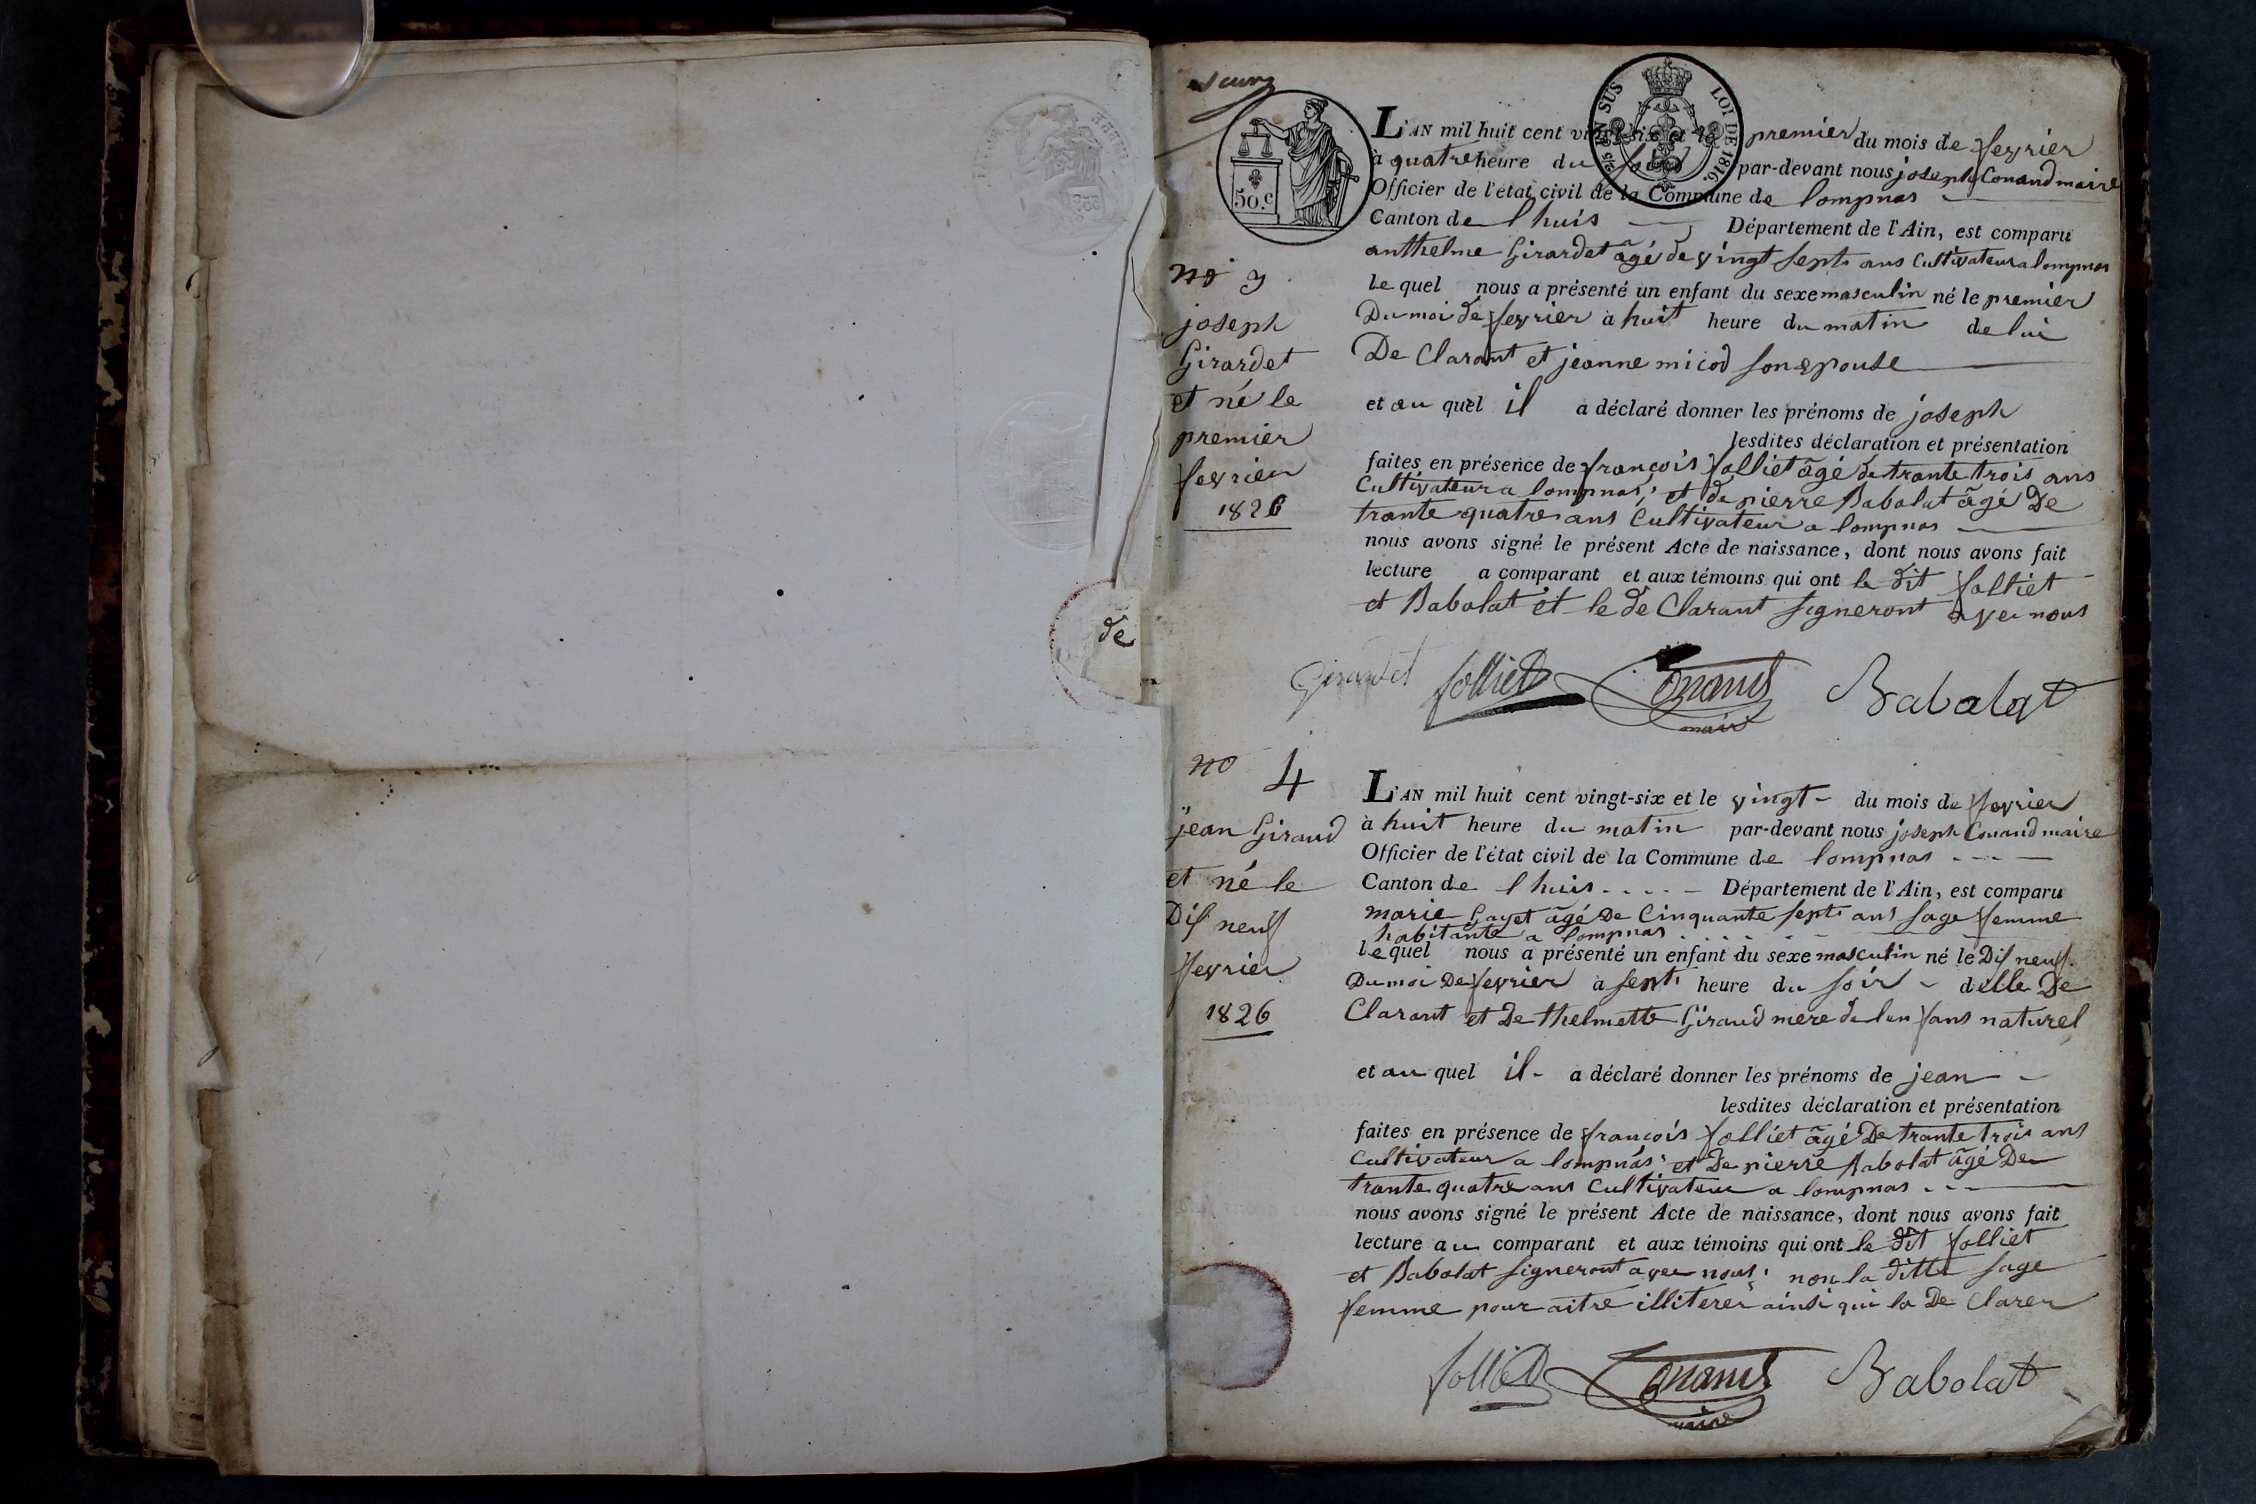 de
50.c
EN SUS
LOI DE 1816.
L'AN mil huit cent vingt-six et le premier du mois de fevrier
à quatre heure du soir par-devant nous joseph Conand maire
Officier de l'état civil de la Commune de lompnas
Canton de l huis Département de l'Ain, est comparu
anthelme Girardet âgé de vingt sept ans Cultivateur a lompnas
le quel nous a présenté un enfant du sexe masculin né le premier
Du moi de fevrier à huit heure du matin de lui
De Clarant et jeanne micod son epouse
et au quel il a déclaré donner les prénoms de joseph
lesdites déclaration et présentation
faites en présence de françois folliet âgé de trante trois ans
Cultivateur a lompnas, et de pierre Babolat âgé De
trante quatre ans Cultivateur a lompnas
nous avons signé le présent Acte de naissance, dont nous avons fait
lecture a comparant et aux témoins qui ont le dit folliet
et Babolat et le de Clarant signeront avec nous
no 3
joseph
Girardet
et né le
premier
fevrier
1826
Girardet folliet Conand Babolat
maire
no 4
jean Giraud
et né le
Dis neuf
fevrier
1826
L'AN mil huit cent vingt-six et le vingt du mois de fevrier
à huit heure du matin par-devant nous joseph Conand maire
Officier de l'état civil de la Commune de lompnas
Canton de l huis Département de l'Ain, est comparu
marie Gayet âgé De Cinquante sept ans sage femme
habitante a lompnas
le quel nous a présenté un enfant du sexe masculin né le Dis neuf
Du moi De fevrier à sept heure du soir delle De
Clarant et De thelmette Giraud mere de lan fans naturel
et au quel il a déclaré donner les prénoms de jean
lesdites déclaration et présentation
faites en présence de françois folliet âgé De trante trois ans
Cultivateur a lompnas, et De pierre Babolat âgé De
trante quatre ans Cultivateur a lompnas
nous avons signé le présent Acte de naissance, dont nous avons fait
lecture au comparant et aux témoins qui ont le dit folliet
et Babolat signeront avec nous, non la ditte sage
femme pour aitre illiterer ainsi qui la De Clarer
folliet Conand Babolat
maire